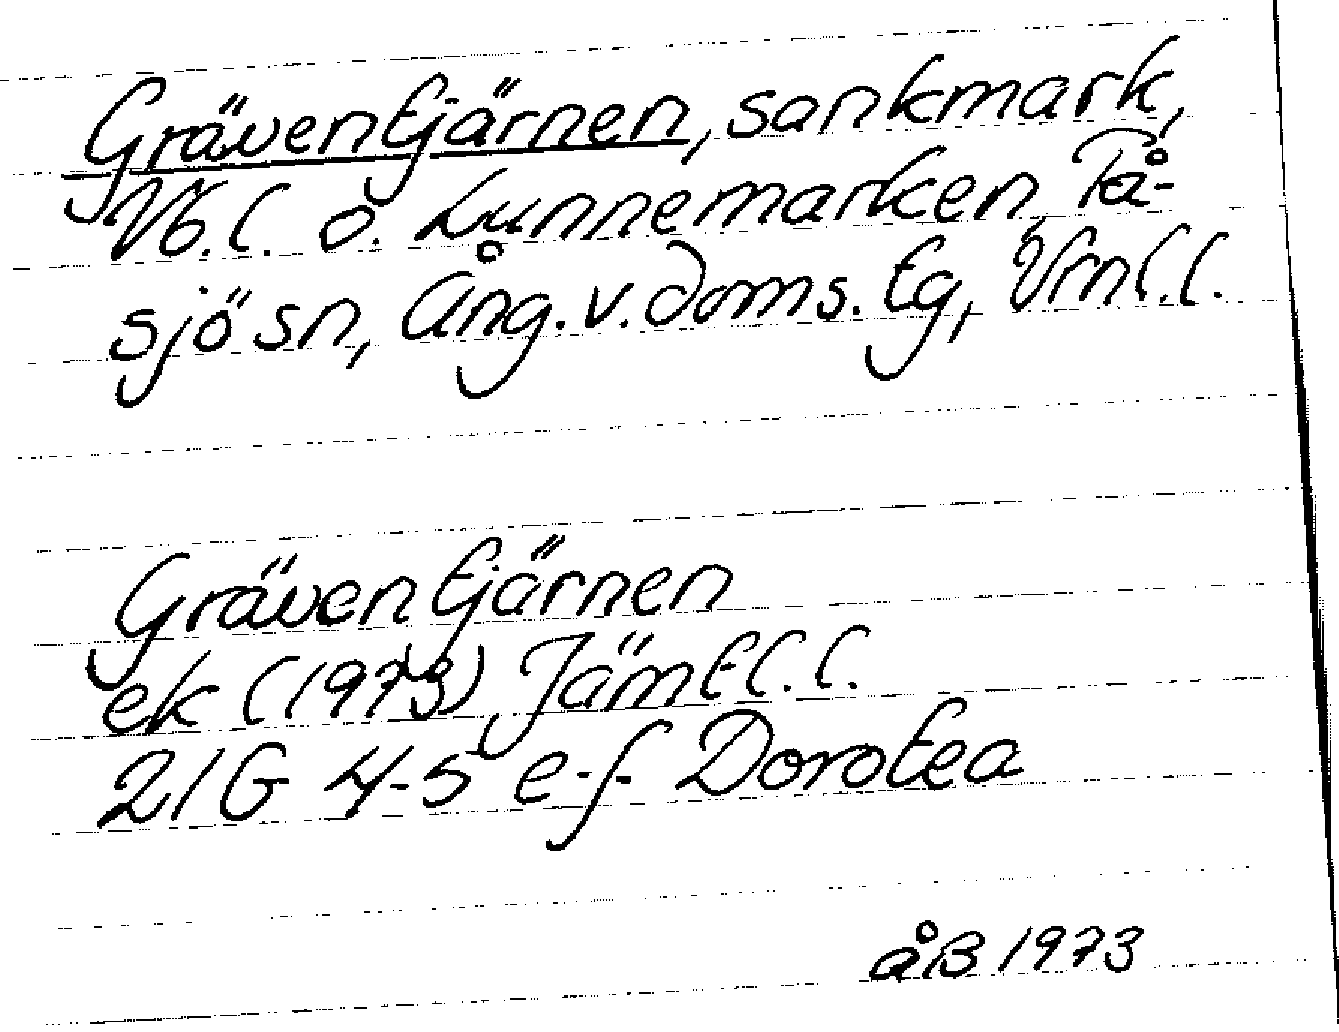 Gräventjärnen, sankmark,
Vb.l. o. Lunnemarken Tå-
sjö sn, Ång. v. doms. tg, Vrnl.l.
Gräventjärnen
ek (1973) Jämtl.l.
21G 4-5 e-f Dorotea
åB 1973